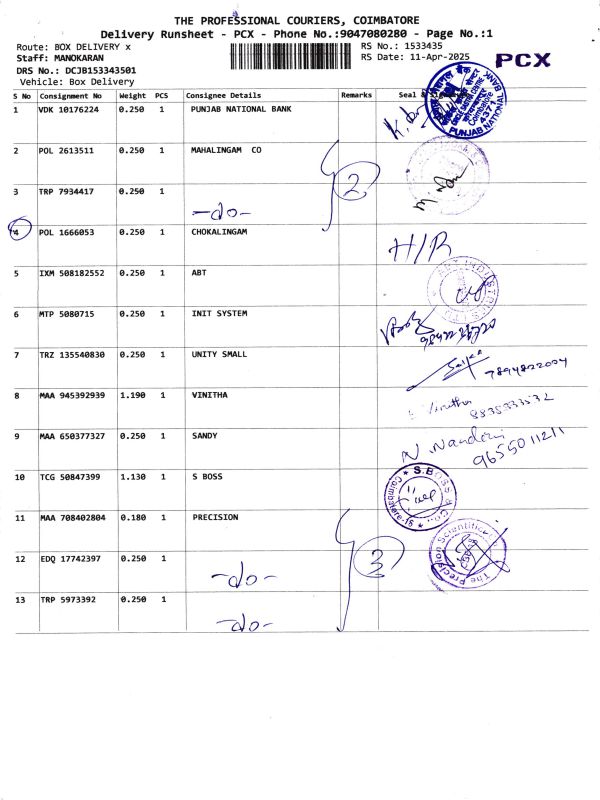 THE PROFESSIONAL COURIERS, COIMBATORE
Delivery Runsheet - PCX - Phone No.:9047080280 - Page No.:1
Route: BOX DELIVERY x
RS No.: 1533435
Staff: MANOKARAN
RS Date: 11-Apr-2025
PCX
DRS No.: DCJB153343501
Vehicle: Box Delivery
S No Consignment No Weight PCS Consignee Details Remarks Seal &
1 VDK 10176224 0.250 1 PUNJAB NATIONAL BANK
Coimbatore 4371 PUNJAB NATIONAL BANK
2 POL 2613511 0.250 1 MAHALINGAM CO
2
3 TRP 7934417 0.250 1 -do-
4 POL 1666053 0.250 1 CHOKALINGAM H/R
5 IXM 508182552 0.250 1 ABT
6 MTP 5080715 0.250 1 INIT SYSTEM
7 TRZ 135540830 0.250 1 UNITY SMALL
8 MAA 945392939 1.190 1 VINITHA Vinitha
9 MAA 650377327 0.250 1 SANDY N. Nandini
9655011211
10 TCG 50847399 1.130 1 S BOSS
S.BOSS & Co. Coimbatore-18
11 MAA 708402804 0.180 1 PRECISION
The Precision Scientific
3
12 EDQ 17742397 0.250 1 -do-
13 TRP 5973392 0.250 1 -do-